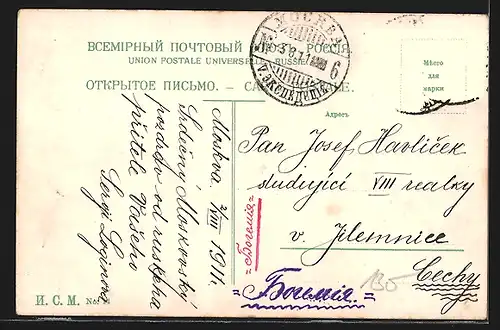 ВСЕМІРНЫЙ ПОЧТОВЫЙ СОЮЗЪ. РОССІЯ.
UNION POSTALE UNIVERSELLE. RUSSIE
ОТКРЫТОЕ ПИСЬМО. —
МОСКВА
6
Мѣсто
для
марки
Адресъ
Moskva. 2/VIII 1911.
Srdečný Moskovský
pozdrav od
přítele Vašeho
Sergi
Pan Josef Havlíček
studující VIII realky
v Jilemnice
Čechy
=Богемія=
=Богемія.=
130-
И. С. М. No.